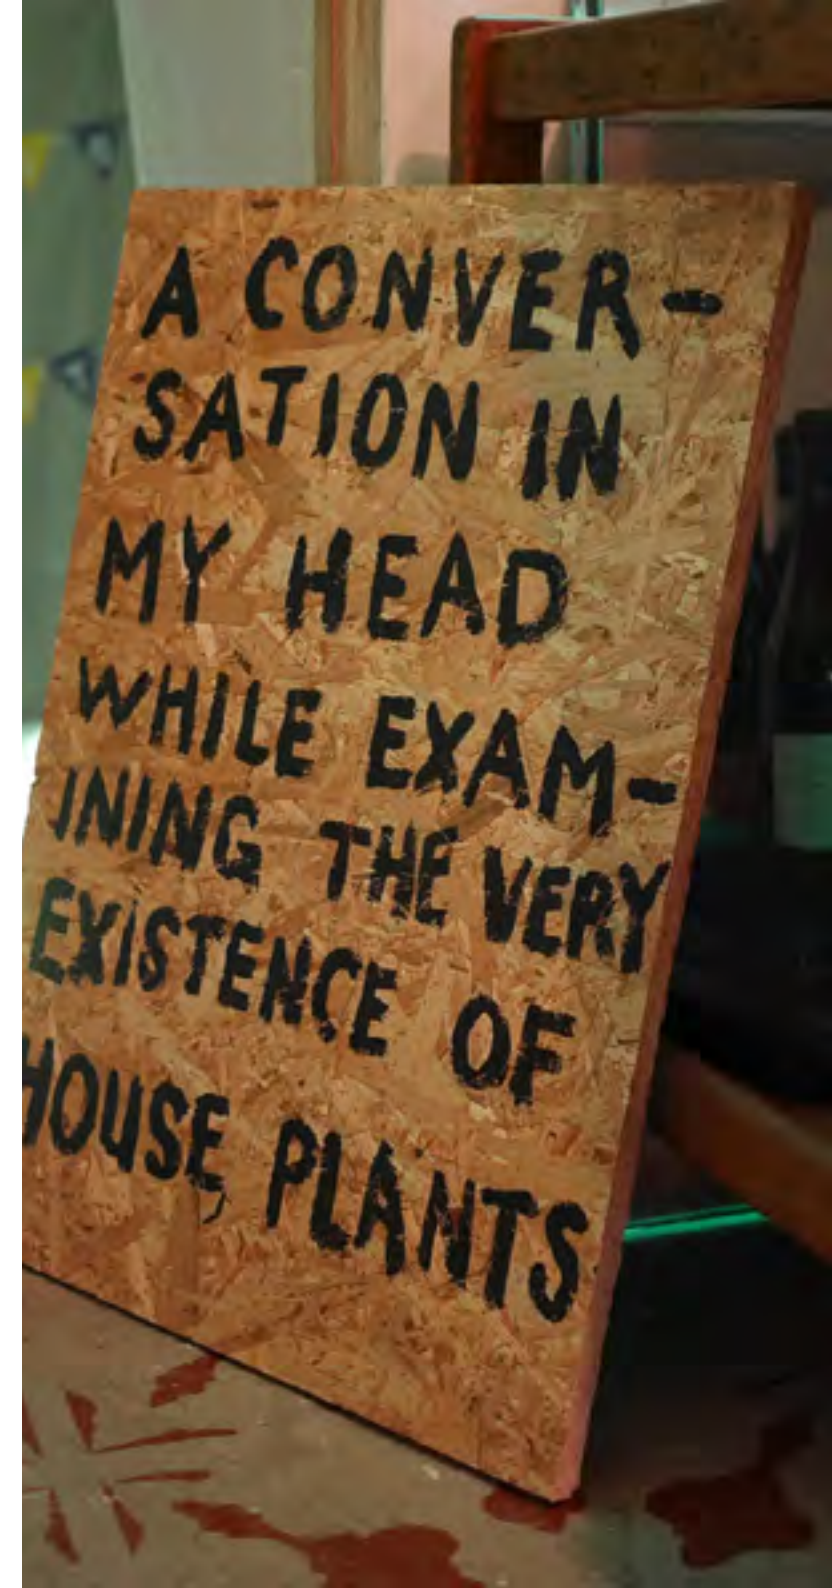 A CONVER-
SATION IN
MY HEAD
WHILE EXAM-
INING THE VERY
EXISTENCE OF
HOUSE PLANTS